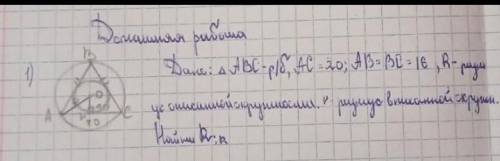 Домашняя работа
1) Дано: △ ABC - р/б, AC = 20; AB = BC = 16, R - ради
ус описанной окружности. r - радиус вписанной окружн.
Найти R; r
B
O
A
C